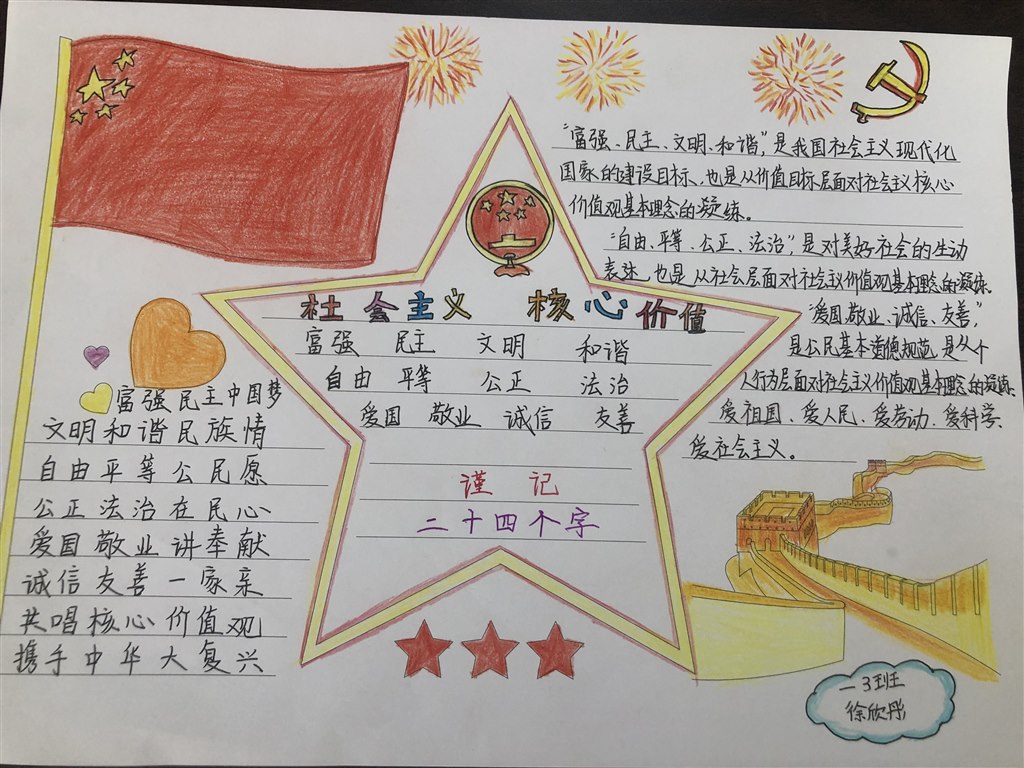 社会主义 核心价值
富强 民主 文明 和谐
自由 平等 公正 法治
爱国 敬业 诚信 友善
谨记
二十四个字
富强民主中国梦
文明和谐民族情
自由平等公民愿
公正法治在民心
爱国敬业讲奉献
诚信友善一家亲
共唱核心价值观
携手中华大复兴
“富强、民主、文明、和谐”，是我国社会主义现代化
国家的建设目标、也是从价值目标层面对社会主义核心
价值观基本理念的凝练。
“自由、平等、公正、法治”，是对美好社会的生动
表述，也是从社会层面对社会主义价值观基本理念的凝练。
“爱国、敬业、诚信、友善”，
是公民基本道德规范，是从个
人行为层面对社会主义价值观基本理念的凝练。
爱祖国、爱人民、爱劳动、爱科学、
爱社会主义。
一3班
徐欣彤